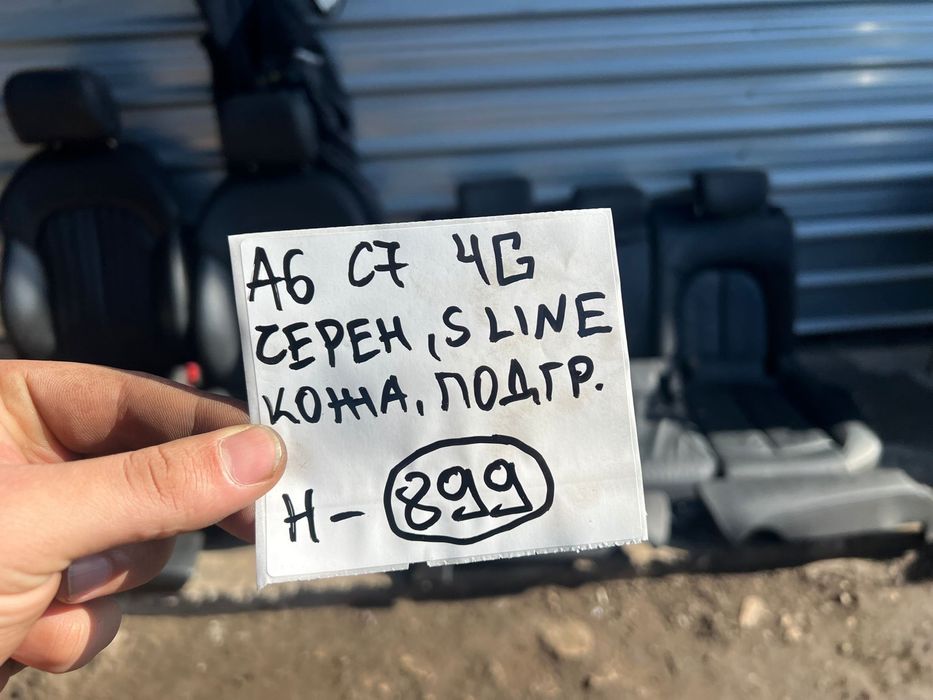 A6 C7 4G
ČEPEH, S LINE
КОЖА, ПОДГР.
H - 899